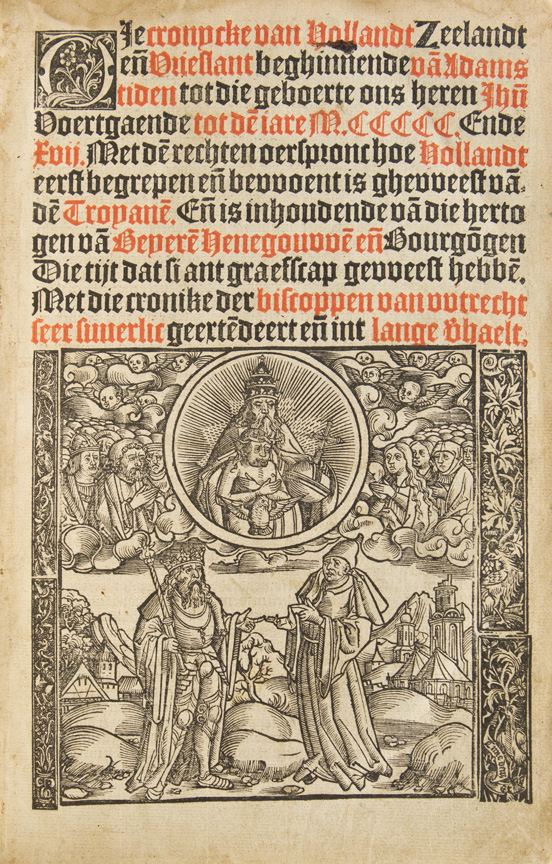 Die cronycke van Hollandt Zeelandt
eñ Vrieslant beghinnende vā Adams
tiden tot die geboerte ons heren Jhū
Voertgaende tot dē iare M.CCCCC. Ende
xvij. Met dē rechten oerspronc hoe Hollandt
eerst begrepen eñ bevvoent is ghevveest vā
dē Troyanē. Eñ is inhoudende vā die herto
gen vā Beyerē Henegouvvē eñ Bourgōgen
Die tijt dat si ant graefscap gevveest hebbē.
Met die cronike der biscoppen van vvtrecht
seer suuerlic geextēdeert eñ int lange v̄haelt.